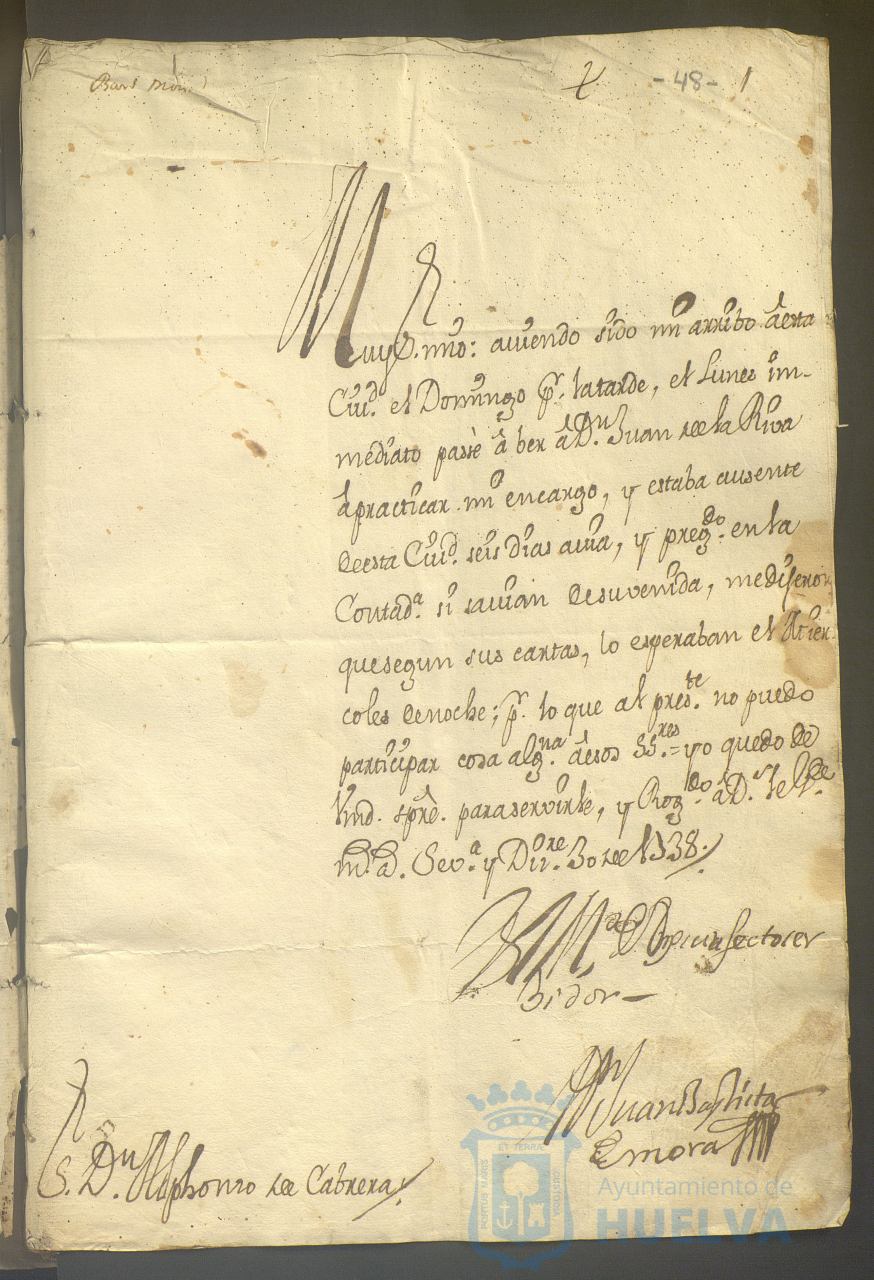 -48- 1
Muy S.r mio: aviendo sido mi arribo â esta
Ciud. el Domingo pr. la tarde, el Lunes im-
mediato passè â ber â D.n Juan de la Riva
â practicar mi encargo, y estaba ausente
de esta Ciud. seis dias avia, y preg.do en la
Contad.a si savian de su venida, me dijeron
que segun sus cartas, lo esperaban el Mier
coles de noche; pr. lo que al pres.te no puedo
participar cosa alg.na â esos SS.res = yo quedo de
Vmd. spre. para servirle, y Rog.do â D.s le g.de
m.s a.s Sev.a y Dizre. 30 de 1738.
BLM de Vm su afecto ser
vidor
D.n Juan Baptista
Zmora
S.r D.n Alphonso de Cabrera
ET TERRAE
PORTUS MARIS
CUSTODIA
Ayuntamiento de
HUELVA